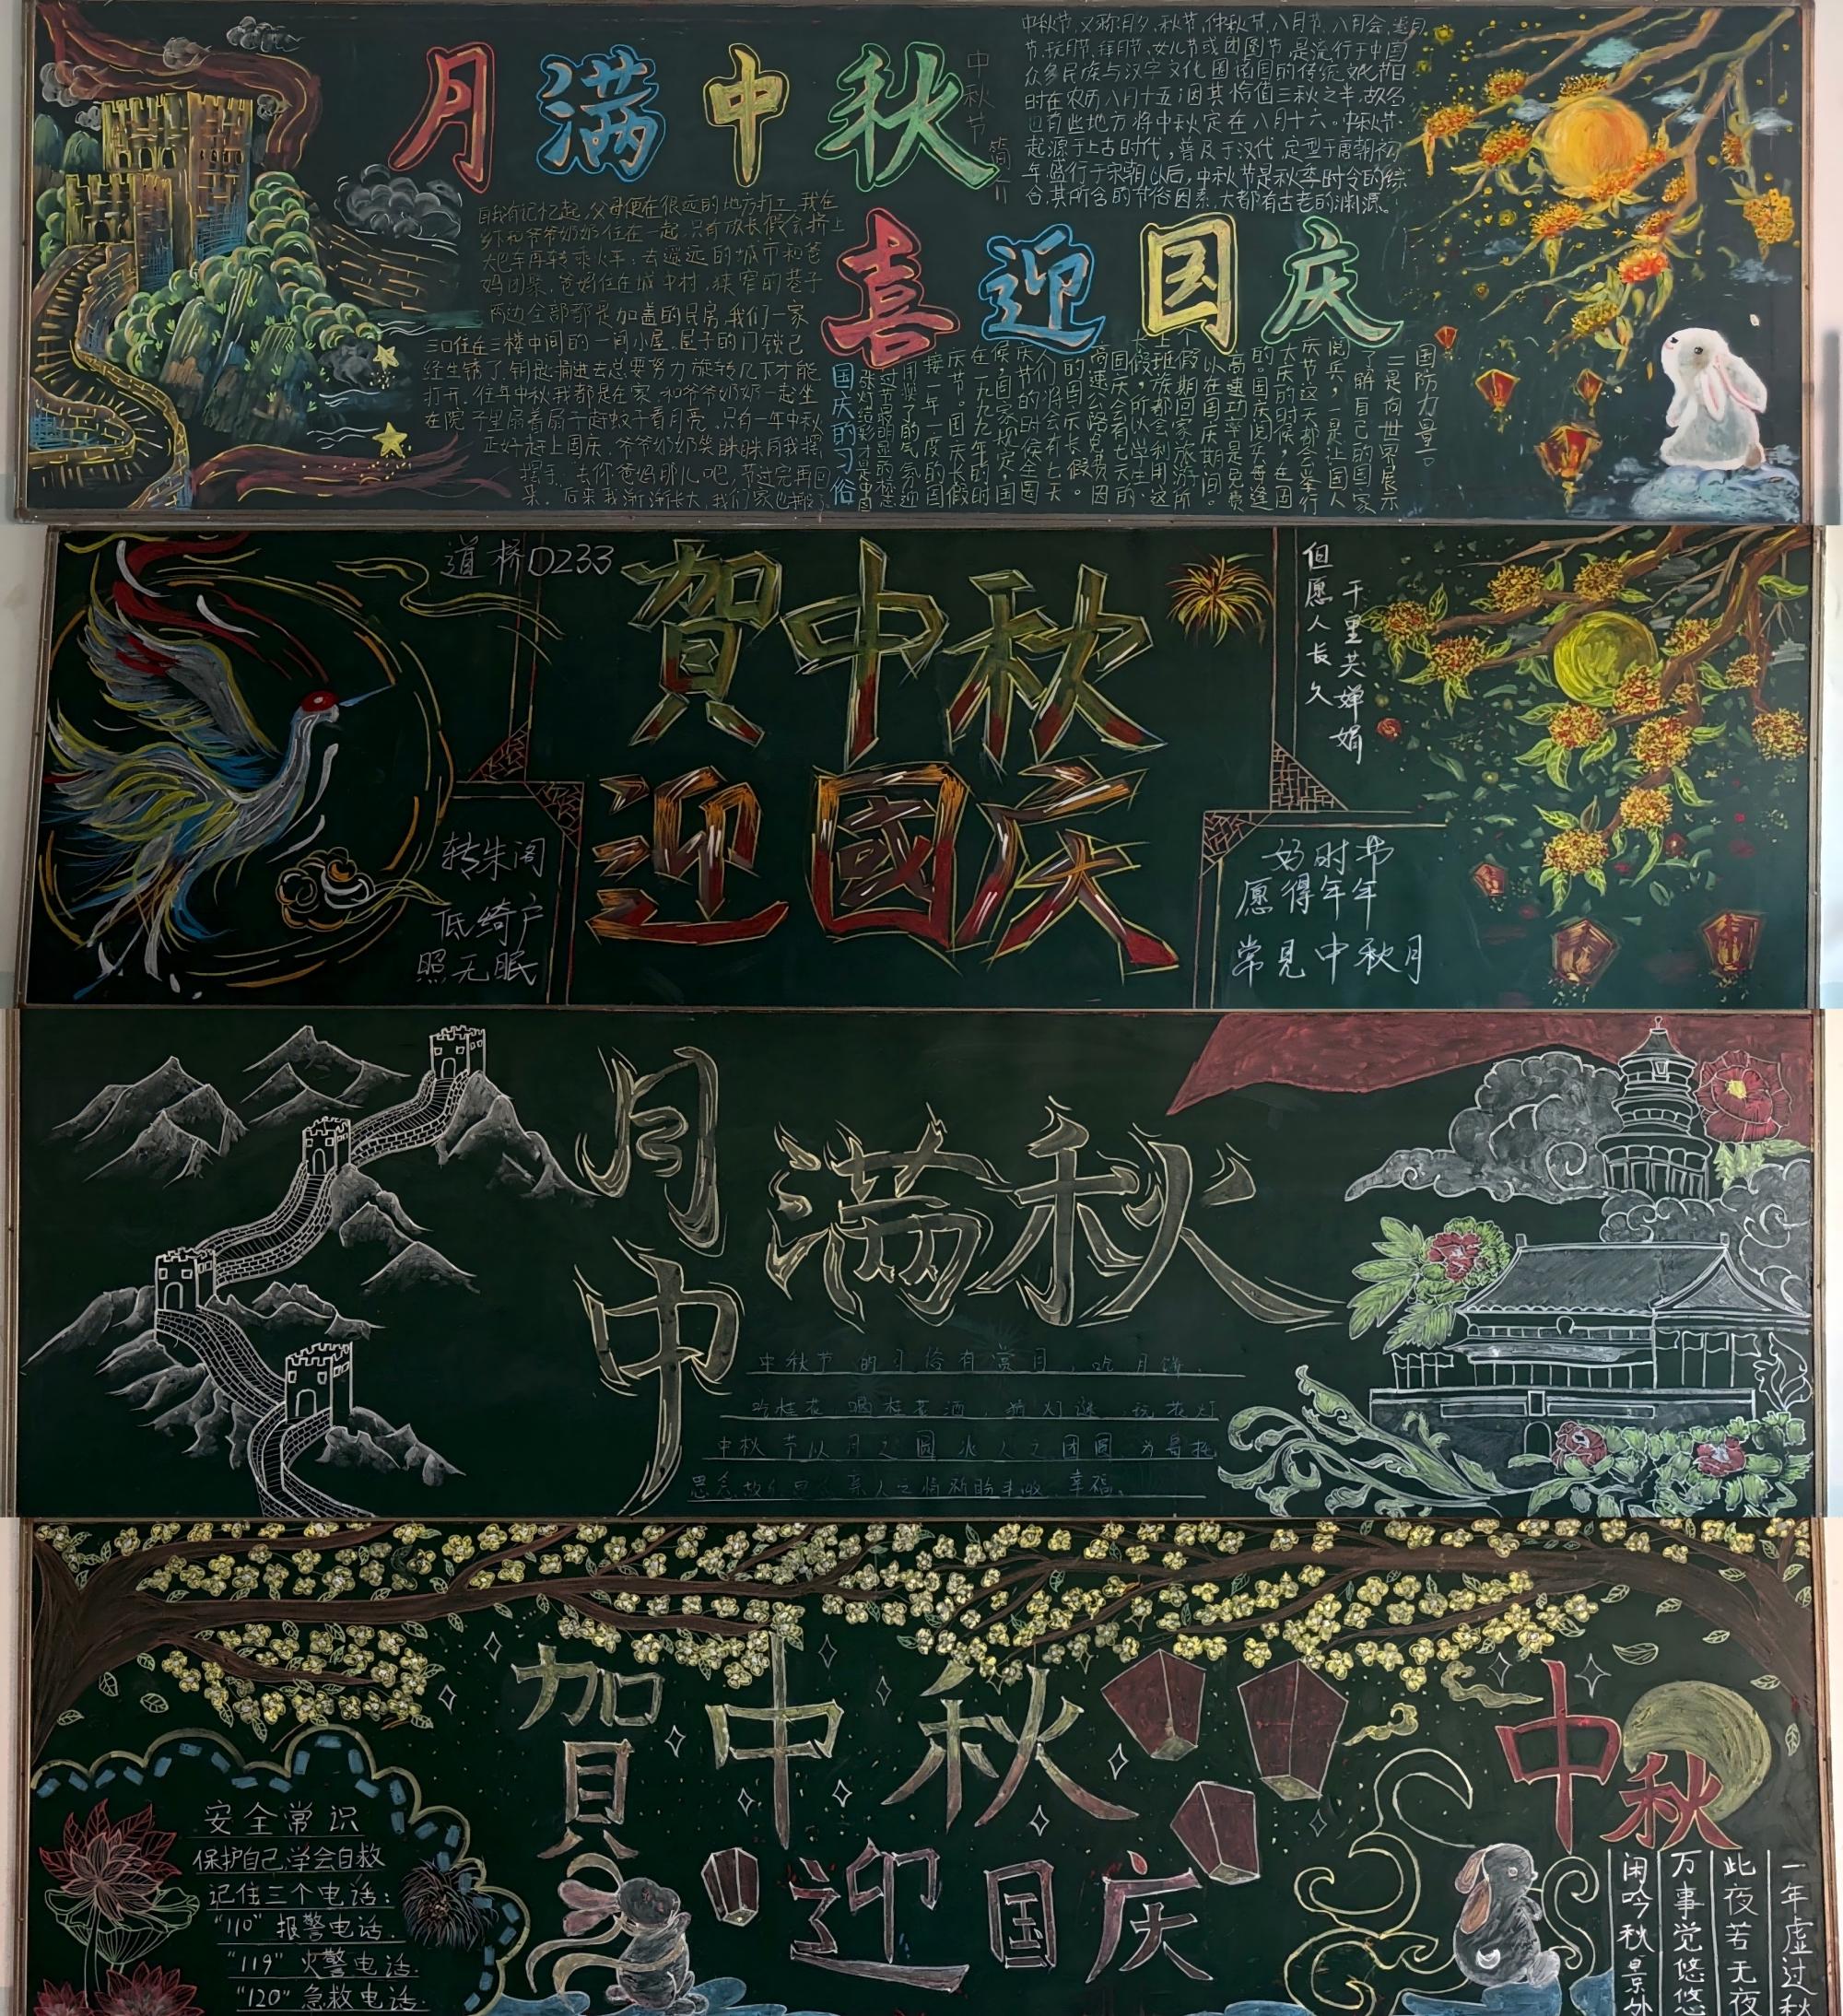 月满中秋
喜迎国庆
中秋节简介
中秋节,又称月夕,秋节,仲秋节,八月节,八月会,追月
节,玩月节,拜月节,女儿节或团圆节,是流行于中国
众多民族与汉字文化圈诸国的传统文化节日
时在农历八月十五;因其恰值三秋之半,故名
也有些地方将中秋定在八月十六。中秋节
起源于上古时代,普及于汉代,定型于唐朝初
年,盛行于宋朝以后,中秋节是秋季时令的综
合,其所含的节俗因素,大都有古老的渊源。
自我有记忆起,父母便在很远的地方打工,我在
乡下和爷爷奶奶住在一起,只有放长假会挤上
大巴车再转乘火车,去遥远的城市和爸
妈团聚,爸妈住在城中村,狭窄的巷子
两边全部都是加盖的民房,我们一家
三口住在三楼中间的一间小屋,屋子的门锁已
经生锈了,钥匙插进去总要努力旋转几下才能
打开,往年中秋我都是在家和爷爷奶奶一起坐
在院子里扇着扇子赶蚊子看月亮,只有一年中秋
正好赶上国庆,爷爷奶奶笑眯眯向我摆
摆手,去你爸妈那儿吧,节过完再回
来。后来我渐渐长大,我们家也搬了
国庆的习俗
张灯结彩才是中国
接一年一度的国
庆节。国庆长假
在一九九九年的时
候,国家规定,国
庆节的时候全国
人们将会有七天
的国庆长假。
国庆会有七天的
高速公路免费因
长假,所以学生、
上班族都会利用这
个假期回家旅游所
以在国庆期间。
高速功率是免费
的。国庆阅兵每逢
大庆的时候,在国
庆节这天都会举行
阅兵,一是让国人
了解自己的国家
二是向世界展示
国防力量。
道桥D233
贺中秋
迎國庆
但愿人长久
千里共婵娟
转朱阁
低绮户
照无眠
好时节
愿得年年
常见中秋月
月满中秋
中秋节的习俗有赏月,吃月饼,
吃桂花,喝桂花酒,猜灯谜,玩花灯
中秋节以月之圆兆人之团圆,为寄托
思念故乡思念亲人之情祈盼丰收、幸福。
贺中秋
迎国庆
安全常识
保护自己,学会自救
记住三个电话:
"110"报警电话.
"119"火警电话.
"120"急救电话.
中秋
一年虚过秋
此夜若无夜
万事觉悠悠
闲吟秋景外